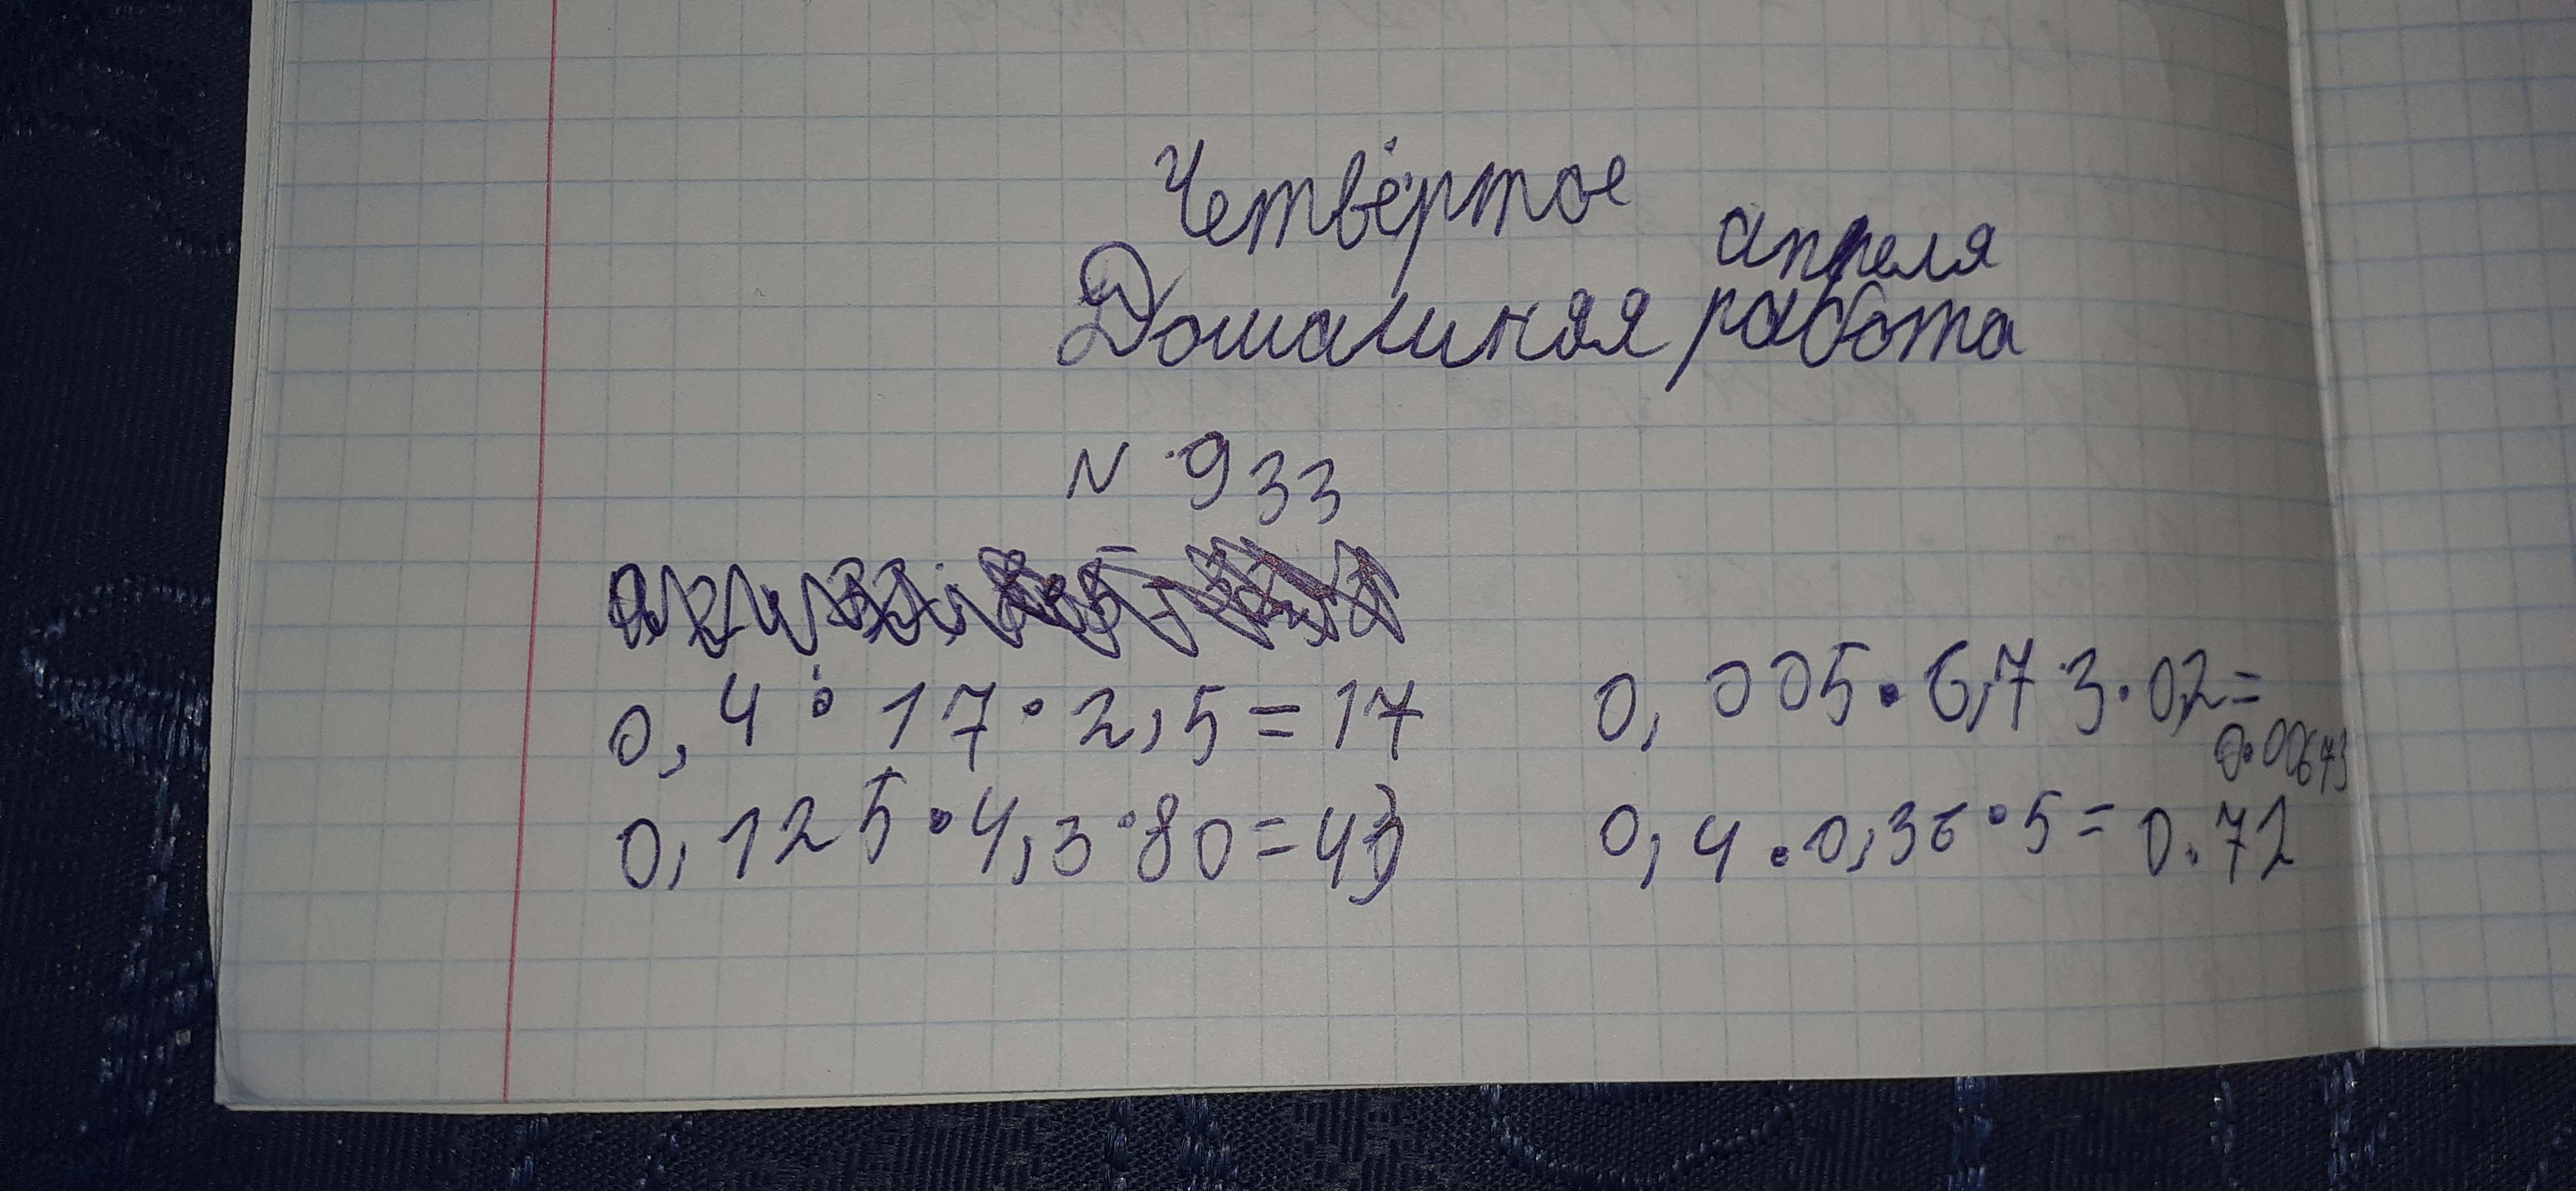 Четвёртое
апреля
Домашняя работа
N 933
0,4 · 17 · 2,5 = 17
0,005 · 6,73 · 0,2 =
0.00673
0,125 · 4,3 · 80 = 43
0,4 · 0,36 · 5 = 0.72